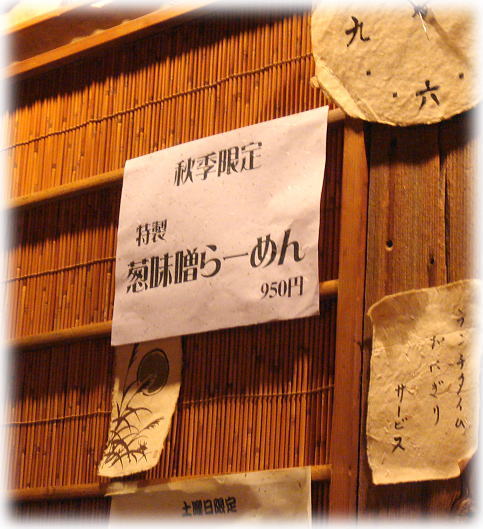 秋季限定
特製
葱味噌らーめん
950円
九
六
ランチタイム
おにぎり
サービス
土曜日限定